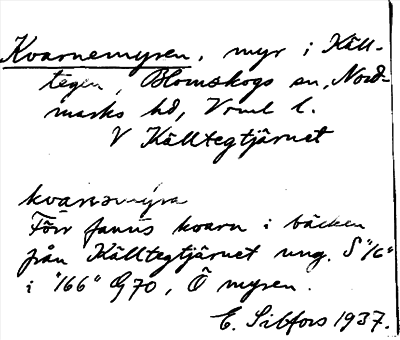 Kvarnemyren, myr i Käll-
tegen, Blomskogs sn, Nord-
marks hd, Vrml l.
V Källtegtjärnet
kvarnomýra
Förr fanns kvarn i bäcken
från Källtegtjärnet ung. S "16"
i "166" G70, Ö myren.
E. Sibfors 1937.